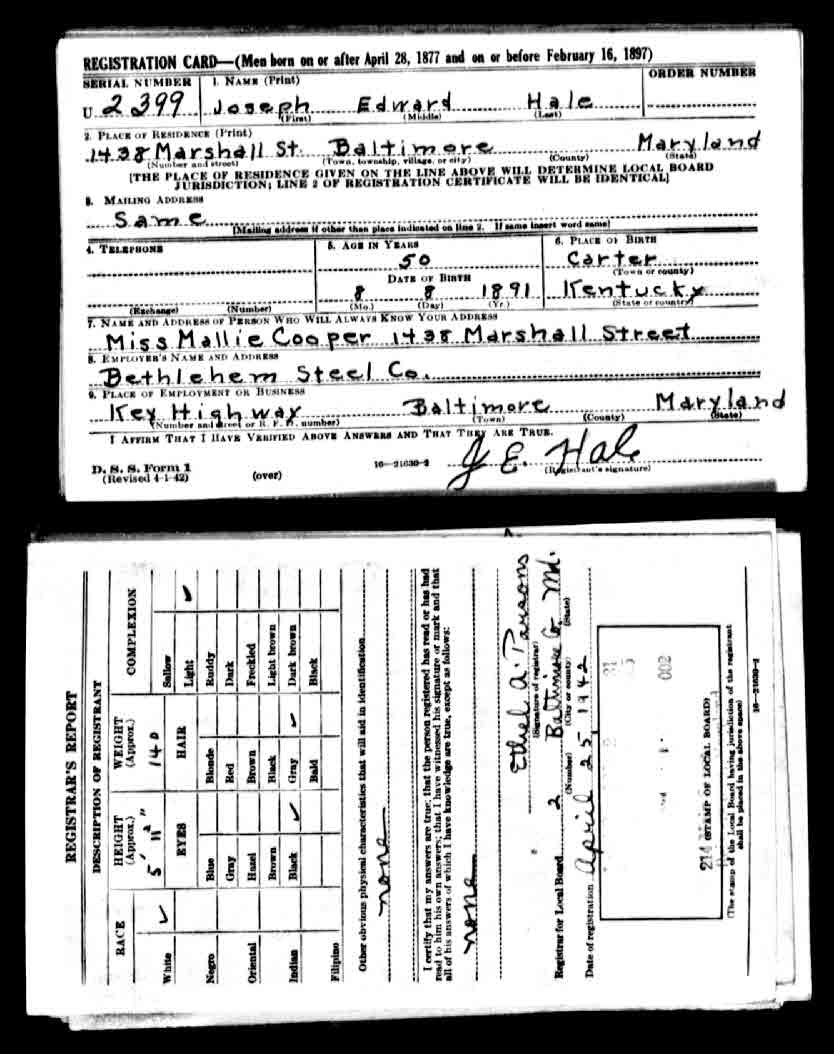 REGISTRATION CARD—(Men born on or after April 28, 1877 and on or before February 16, 1897)
SERIAL NUMBER 1. NAME (Print) ORDER NUMBER
U 2399 Joseph Edward Hale
(First) (Middle) (Last)
2. PLACE OF RESIDENCE (Print)
1438 Marshall St. Baltimore Maryland
(Number and street) (Town, township, village, or city) (County) (State)
[THE PLACE OF RESIDENCE GIVEN ON THE LINE ABOVE WILL DETERMINE LOCAL BOARD
JURISDICTION; LINE 2 OF REGISTRATION CERTIFICATE WILL BE IDENTICAL]
3. MAILING ADDRESS
Same
[Mailing address if other than place indicated on line 2. If same insert word same]
4. TELEPHONE 5. AGE IN YEARS 6. PLACE OF BIRTH
50 Carter
(Town or county)
DATE OF BIRTH
8 8 1891 Kentucky
(Exchange) (Number) (Mo.) (Day) (Yr.) (State or country)
7. NAME AND ADDRESS OF PERSON WHO WILL ALWAYS KNOW YOUR ADDRESS
Miss Mallie Cooper 1438 Marshall Street
8. EMPLOYER'S NAME AND ADDRESS
Bethlehem Steel Co.
9. PLACE OF EMPLOYMENT OR BUSINESS
Key Highway Baltimore Maryland
(Number and street or R. F. D. number) (Town) (County) (State)
I AFFIRM THAT I HAVE VERIFIED ABOVE ANSWERS AND THAT THEY ARE TRUE.
J E. Hale
D. S. S. Form 1
(Revised 4-1-42) (over) 16—21630-2 (Registrant's signature)
REGISTRAR'S REPORT
DESCRIPTION OF REGISTRANT
RACE HEIGHT (Approx.) WEIGHT (Approx.) COMPLEXION
White ✓ 5' 11 2" 140 Sallow
EYES HAIR Light ✓
Negro Blue Blonde Ruddy
Gray Red Dark
Oriental Hazel Brown Freckled
Brown Black Light brown
Indian Black ✓ Gray ✓ Dark brown
Filipino Bald Black
Other obvious physical characteristics that will aid in identification
none
I certify that my answers are true; that the person registered has read or has had
read to him his own answers; that I have witnessed his signature or mark and that
all of his answers of which I have knowledge are true, except as follows:
none
Ethel A. Parsons
(Signature of registrar)
Registrar for Local Board 2 Baltimore Co. Md.
(Number) (City or county) (State)
Date of registration April 25, 1942
002
214 (STAMP OF LOCAL BOARD)
(The stamp of the Local Board having jurisdiction of the registrant
shall be placed in the above space)
16—21630-2